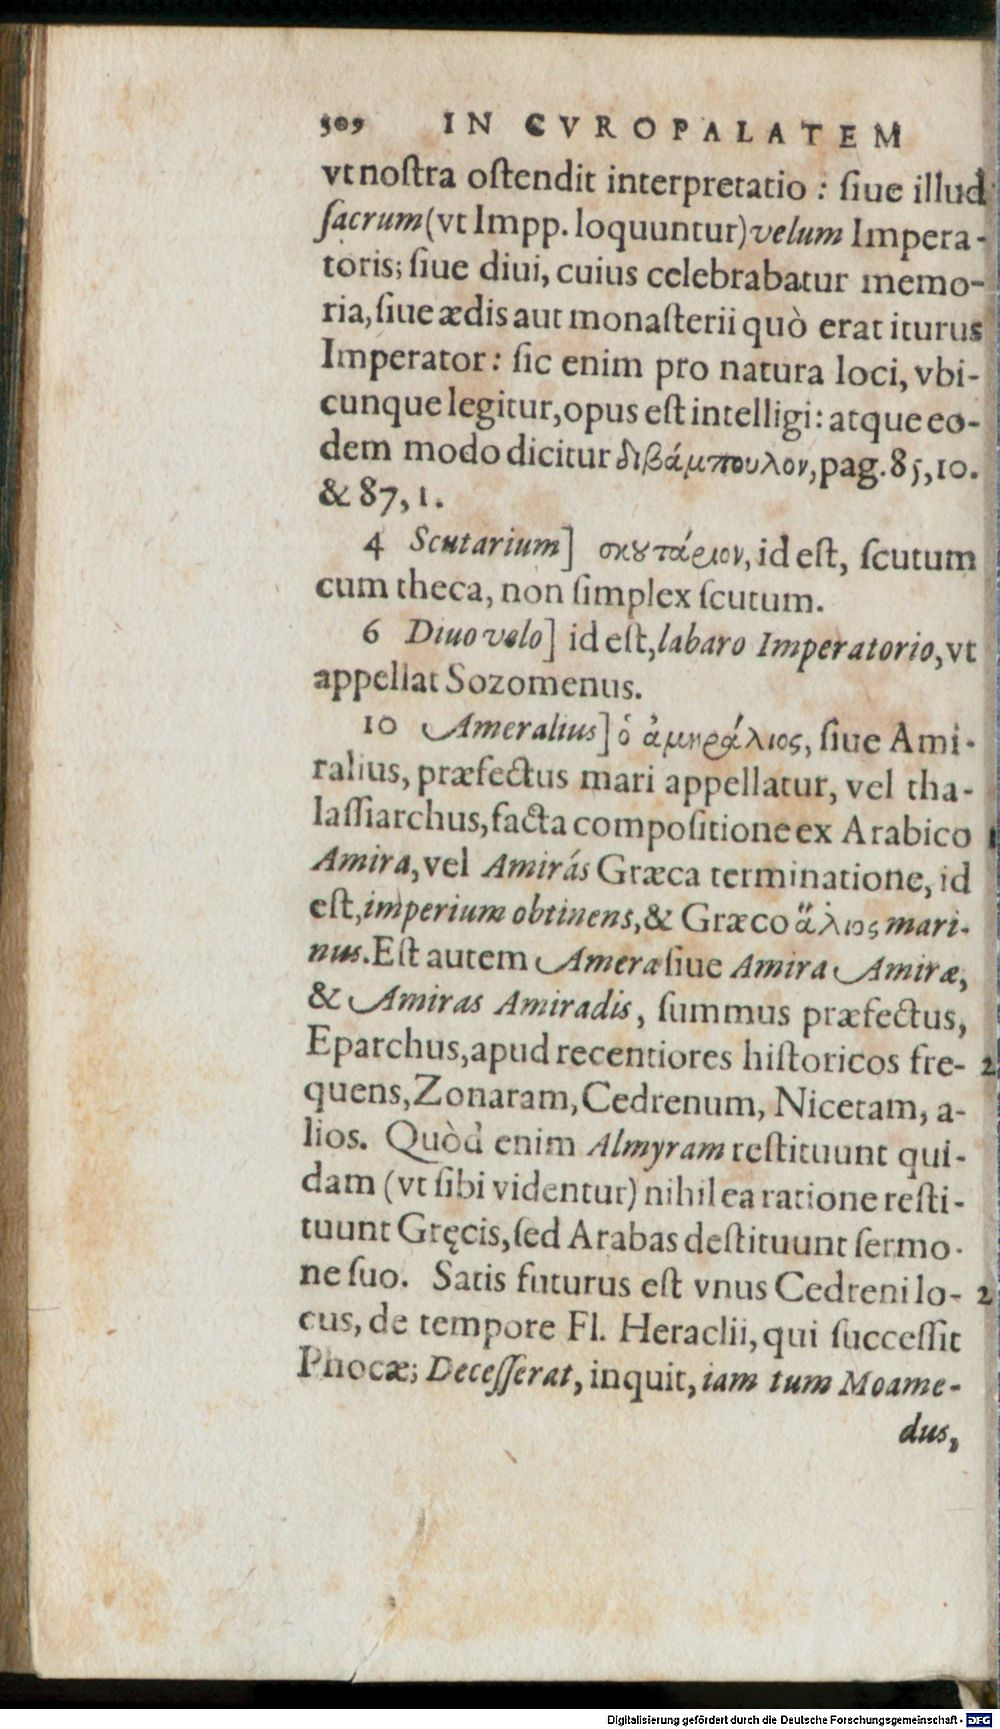 309 IN CVROPALATEM
vt noſtra oſtendit interpretatio : ſiue illud
ſacrum (vt Impp. loquuntur) velum Impera-
toris; ſiue diui, cuius celebrabatur memo-
ria, ſiue ædis aut monaſterii quò erat iturus
Imperator: ſic enim pro natura loci, vbi-
cunque legitur, opus eſt intelligi: atque eo-
dem modo dicitur διβάμπουλον, pag. 85, 10.
& 87, 1.
4 Scutarium] σκȣτάριον, id eſt, ſcutum
cum theca, non ſimplex ſcutum.
6 Diuo velo] id eſt, labaro Imperatorio, vt
appellat Sozomenus.
10 Ameralius] ὁ ἀμηράλιος, ſiue Ami-
ralius, præfectus mari appellatur, vel tha-
laſſiarchus, facta compoſitione ex Arabico
Amira, vel Amirás Græca terminatione, id
eſt, imperium obtinens, & Græco ἅλιος mari-
nus. Eſt autem Ameræ ſiue Amira Amiræ,
& Amiras Amiradis, ſummus præfectus,
Eparchus, apud recentiores hiſtoricos fre- 2
quens, Zonaram, Cedrenum, Nicetam, a-
lios. Quòd enim Almyram reſtituunt qui-
dam (vt ſibi videntur) nihil ea ratione reſti-
tuunt Gręcis, ſed Arabas deſtituunt ſermo-
ne ſuo. Satis futurus eſt vnus Cedreni lo- 2
cus, de tempore Fl. Heraclii, qui ſucceſſit
Phocæ; Deceſſerat, inquit, iam tum Moame-
dus,
Digitalisierung gefördert durch die Deutsche Forschungsgemeinschaft - DFG